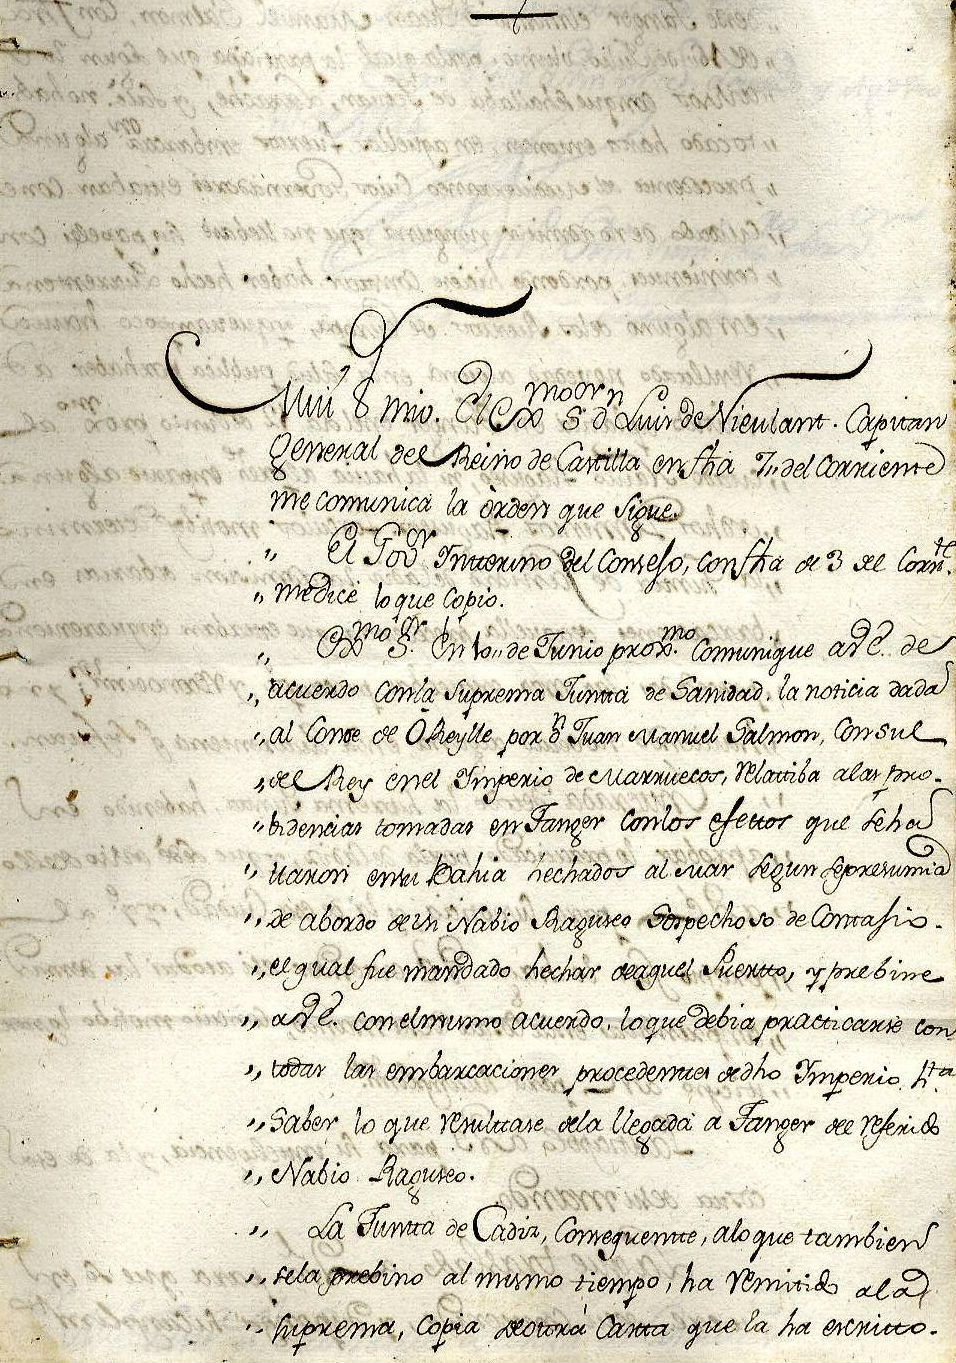 Mui S.ʳ mio. El Exᵐᵒ Sᵒʳ dⁿ Luis de Nieulant. Capitan
general del Reino de Castilla en fha 7,, del corriente
me comunica la òrden que sigue.
,, El Govᵒʳ Ynterino del Consejo, con fha de 3 del Corrᵗᵉ.
,, me dice lo que copio.
,, Exᵐᵒ Sᵒʳ. En 10,, de Junio proxᵐᵒ. comunique a V.E. de
,, acuerdo con la suprema Juntta de Sanidad, la noticia dada
,, al Conde de ÔReylle por dⁿ Juan Manuel Salmon, Consul
,, del Rey en el Ymperio de Marruecos, relattiba a las pro-
,, bidencias tomadas en Tanger con los efectos que se ha
,, llaron en su Bahia hechados al mar segun se presumia
,, de abordo de un Nabio Raguseo Sospechoso de Contasio.
,, el qual fue mandado hechar de aquel Puertto, y prebine
,, a V.E. con el mismo acuerdo, lo que debia practicarse con
,, todas las embarcaciones procedentes de dho Ymperio, hᵗᵃ
,, Saber lo que resulttase de la llegada a Tanger del referido
,, Nabio Raguseo.
,, La Juntta de Cadiz, Consequentte, a lo que tambien
,, se la prebino al mismo tiempo, ha remitido a la
,, suprema, Copia de ottra Cartta que la ha escritto.